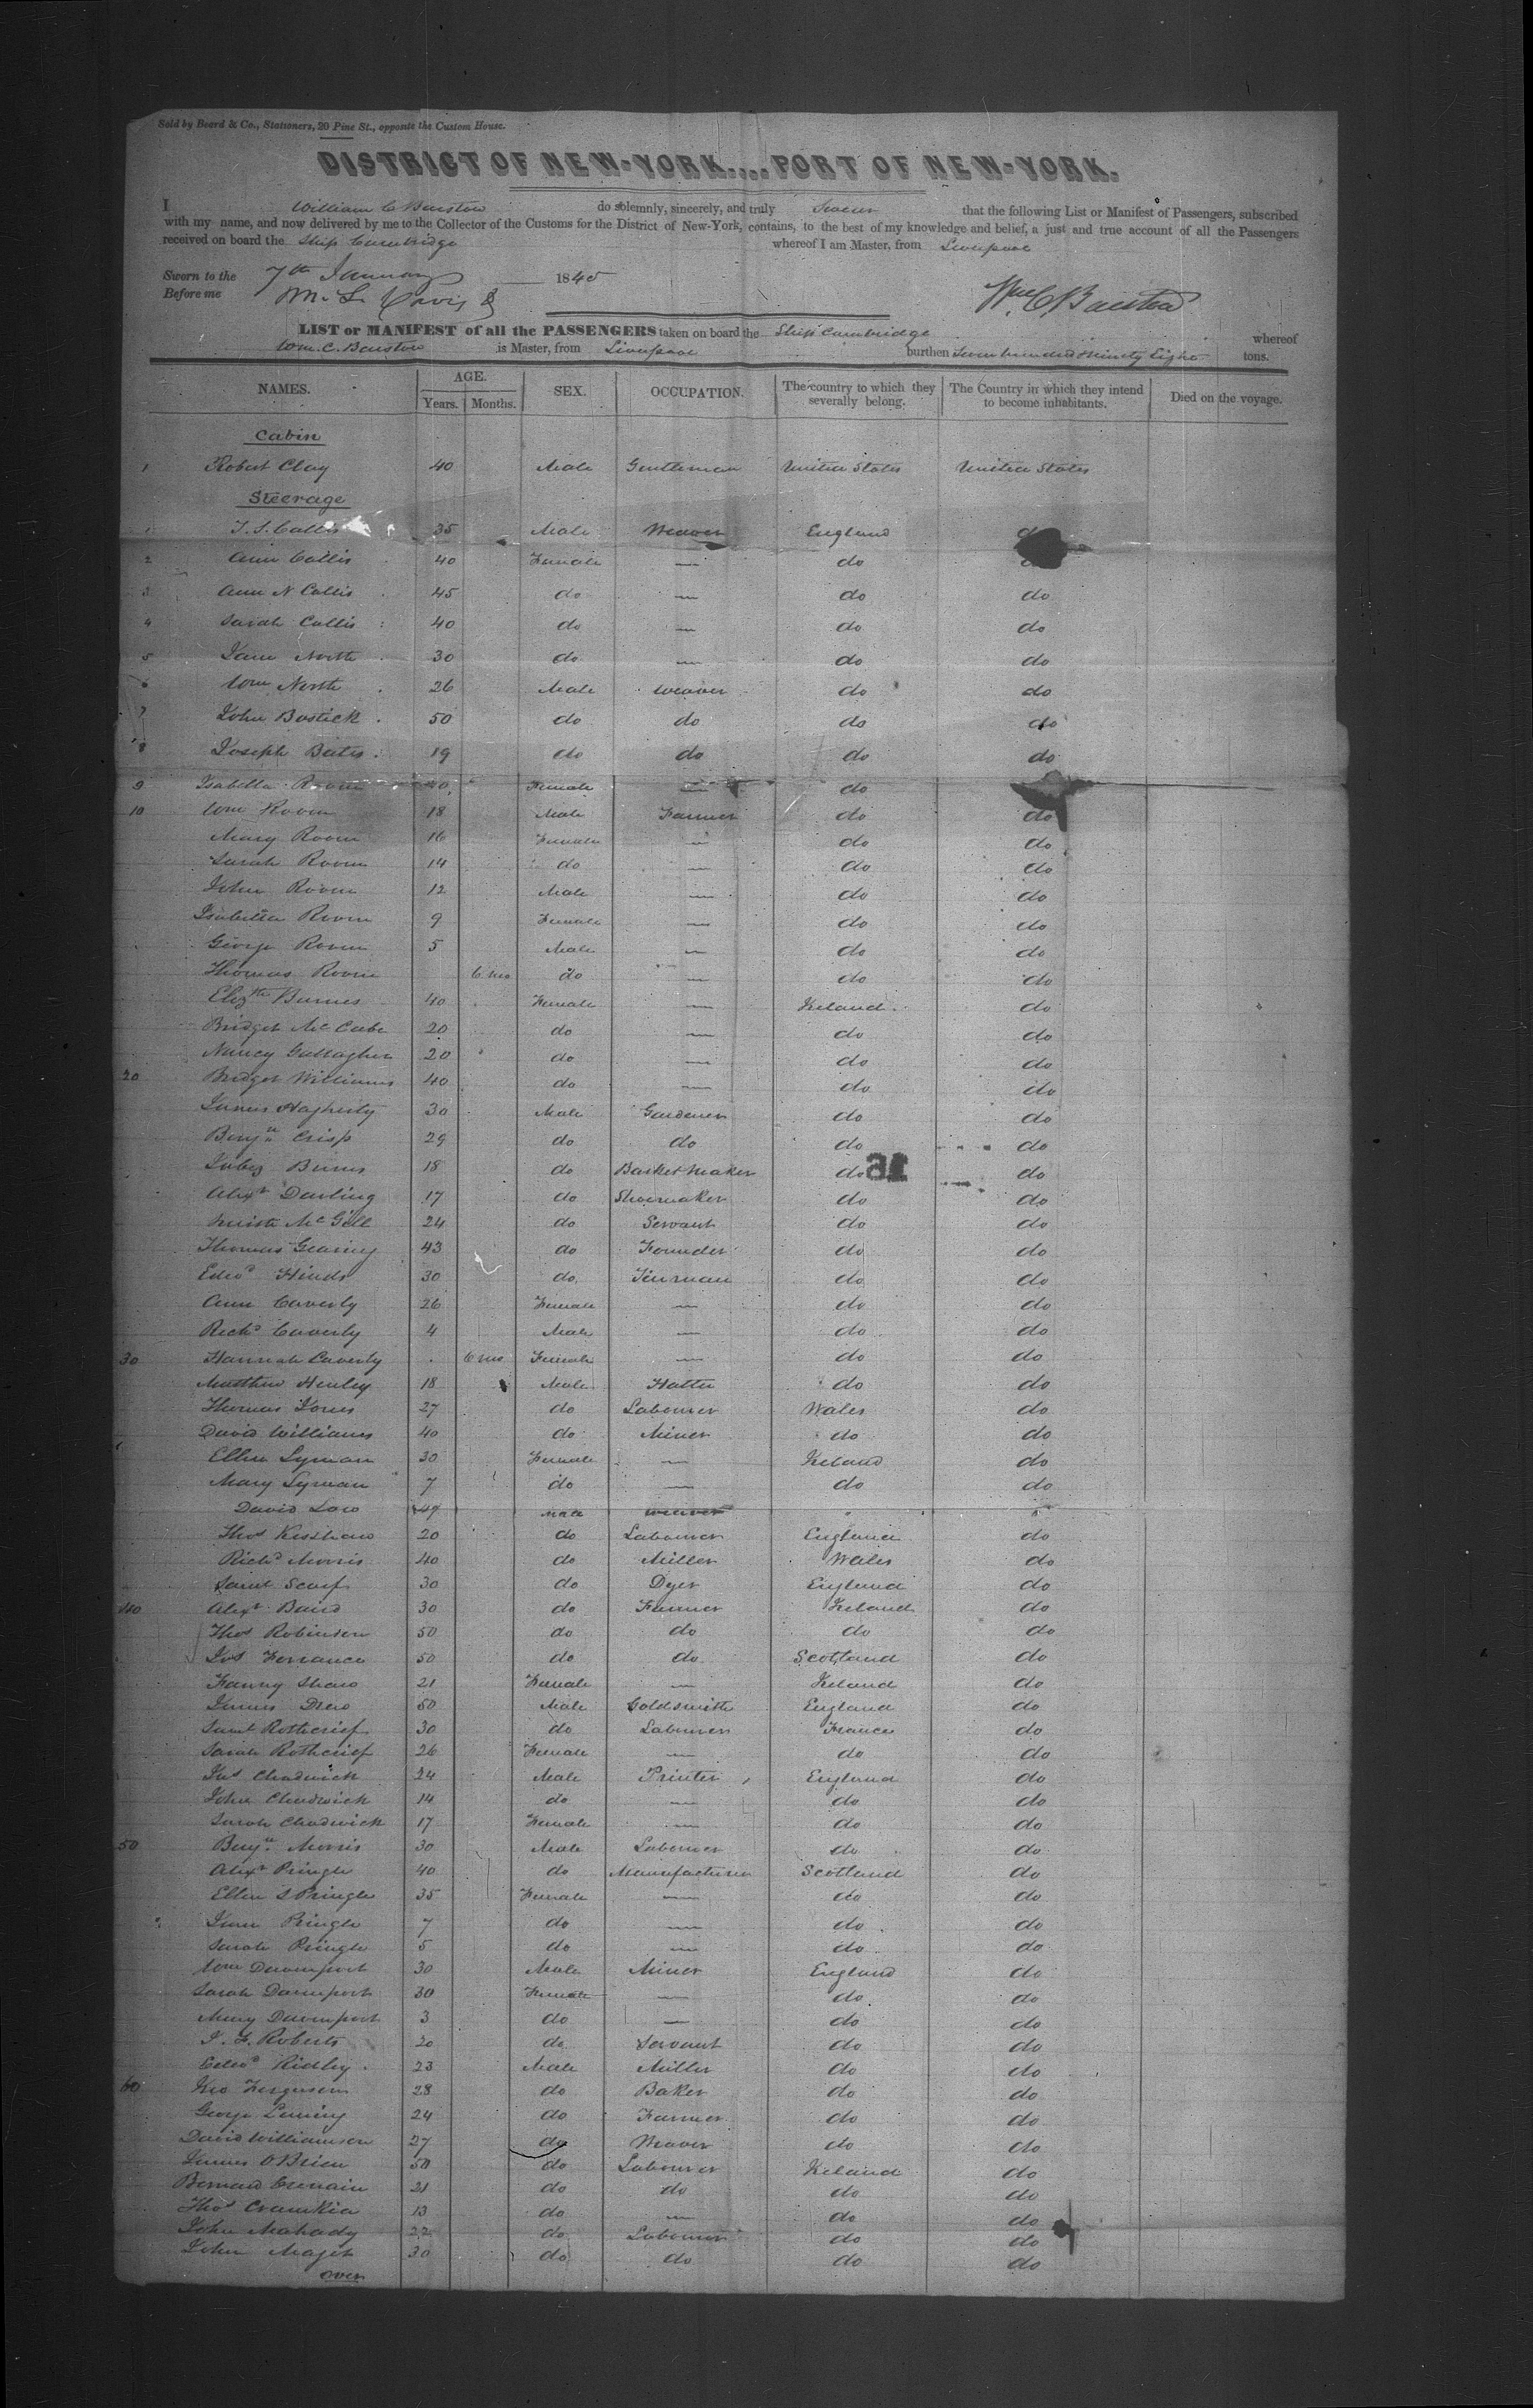 Sold by Beard & Co., Stationers, 20 Pine St., opposite the Custom House.
DISTRICT OF NEW-YORK....PORT OF NEW-YORK.
I William C Barstow do solemnly, sincerely, and truly Swear that the following List or Manifest of Passengers, subscribed
with my name, and now delivered by me to the Collector of the Customs for the District of New-York, contains, to the best of my knowledge and belief, a just and true account of all the Passengers
received on board the Ship Cambridge whereof I am Master, from Liverpool
Sworn to the 7th January 1845
Before me
Wm. C. Barstow
LIST or MANIFEST of all the PASSENGERS taken on board the Ship Cambridge whereof
Wm. C. Barstow is Master, from Liverpool burthen Seven hundred Ninety Eight tons.
NAMES. AGE. Years. Months. SEX. OCCUPATION. The country to which they severally belong. The Country in which they intend to become inhabitants. Died on the voyage.
Cabin
1 Robert Clay 40 Male Gentleman United States United States
Steerage
1 35 Male Weaver England do
2 Ann Collis 40 Female — do
3 Ann N Collis 45 do — do do
4 Sarah Collis 40 do — do do
5 Jane North 30 do — do do
6 Wm North 26 Male Weaver do do
7 John Bostick 50 do do do do
8 Joseph Bates 19 do do do do
9 Isabella Room 40 Female — do
10 Wm Room 18 Male Farmer do do
Mary Room 16 Female — do do
Sarah Room 14 do — do do
John Room 12 Male — do do
Isabella Room 9 Female — do do
George Room 5 Male — do do
Thomas Room 6 mo do — do do
Elizth Burnes 40 Female — Ireland do
Bridget McCabe 20 do — do do
Nancy Gallagher 20 do — do do
20 Bridget Williams 40 do — do do
James Hagherty 30 Male Gardener do do
Benjn Crisp 29 do do do do
Jabez Burns 18 do Basket Maker do do
Alexr Darling 17 do Shoemaker do do
McGill 24 do Servant do do
Thomas Gearing 43 do Founder do do
Edwd Hinds 30 do Tinman do do
Ann Caverly 26 Female — do do
Richd Caverly 4 Male — do do
30 Hannah Caverly 6 mo Female — do do
Matthew Henley 18 Male Hatter do do
Thomas Jones 27 do Labourer Wales do
David Williams 40 do Miner do do
Ellen Lyman 30 Female — Ireland do
Mary Lyman 7 do — do do
David Low 49 Male Weaver
Thos Kershaw 20 do Labourer England do
Richd Morris 40 do Miller Wales do
Saml Scarf 30 do Dyer England do
40 Alexr Baird 30 do Farmer Ireland do
Thos Robinson 50 do do do do
Jos Ferrance 50 do do Scotland do
Fanny Shaw 21 Female — Ireland do
James Drew 50 Male Goldsmith England do
Saml Rothcrief 30 do Labourer France do
Sarah Rothcrief 26 Female — do do
Jas Chadwick 24 Male Printer England do
John Chadwick 14 do — do do
Sarah Chadwick 17 Female — do do
50 Benjn Morris 30 Male Labourer do do
Alexr Pringle 40 do Manufacturer Scotland do
Ellen S Pringle 35 Female — do do
Jane Pringle 7 do — do do
Sarah Pringle 5 do — do do
Wm Davenport 30 Male Miner England do
Sarah Davenport 30 Female — do do
Mary Davenport 3 do — do do
J. F. Roberts 20 do Servant do do
Edwd Ridley 23 Male Miller do do
60 Geo Ferguson 28 do Baker do do
George Leming 24 do Farmer do do
David Williamson 27 do Weaver do do
James O'Brien 50 do Labourer Ireland do
Bernard 21 do do do do
Thos 13 do — do do
John Mahady 22 do Labourer do do
John Magit 30 do do do do
over